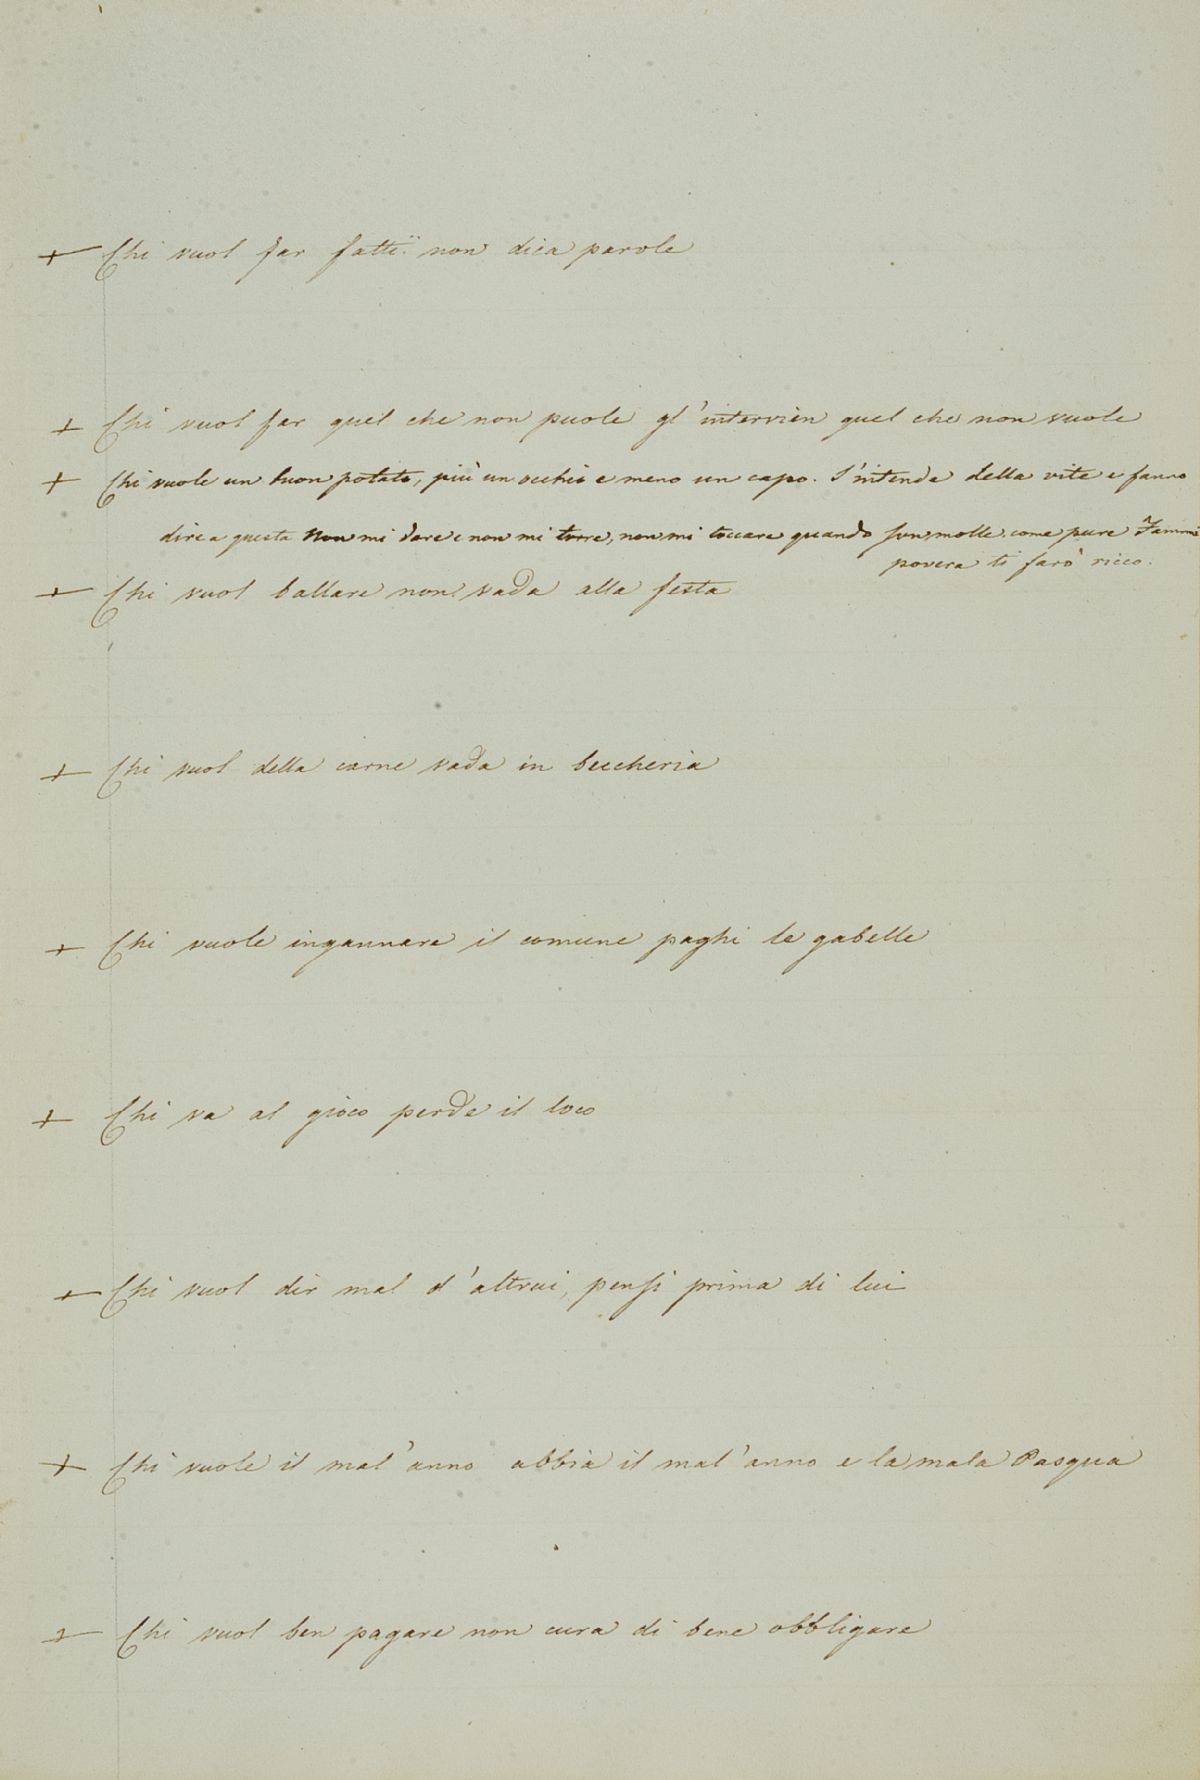 + Chi vuol far fatti non dica parole
+ Chi vuol far quel che non puole gl'intervien quel che non vuole
+ Chi vuole un buon potato, più un occhio e meno un capo. S'intende della vite e fanno
dire a questa Non mi dare e non mi torre, non mi toccare quando son molle come pure Fammi
povera ti farò ricco.
+ Chi vuol ballare non vada alla festa
+ Chi vuol della carne vada in beccheria
+ Chi vuole ingannare il comune paghi le gabelle
+ Chi va al gioco perde il loco
+ Chi vuol dir mal d'altrui, pensi prima di lui
+ Chi vuole il mal'anno abbia il mal'anno e la mala Pasqua
+ Chi vuol ben pagare non cura di bene obbligare